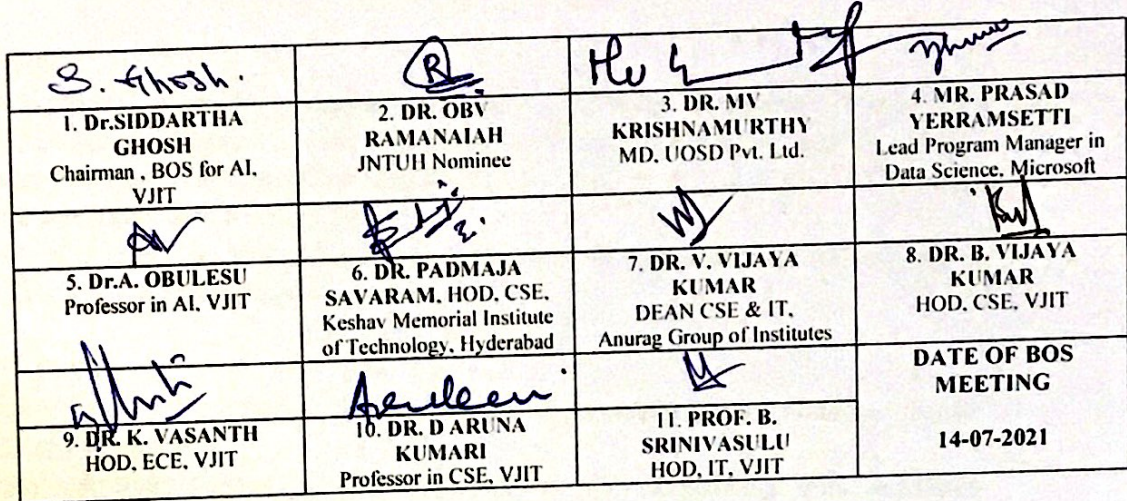 S. Ghosh.
1. Dr.SIDDARTHA
GHOSH
Chairman , BOS for AI,
VJIT
2. DR. OBV
RAMANAIAH
JNTUH Nominee
3. DR. MV
KRISHNAMURTHY
MD, UOSD Pvt. Ltd.
4. MR. PRASAD
YERRAMSETTI
Lead Program Manager in
Data Science, Microsoft
5. Dr.A. OBULESU
Professor in AI, VJIT
6. DR. PADMAJA
SAVARAM, HOD, CSE,
Keshav Memorial Institute
of Technology, Hyderabad
7. DR. V. VIJAYA
KUMAR
DEAN CSE & IT,
Anurag Group of Institutes
8. DR. B. VIJAYA
KUMAR
HOD, CSE, VJIT
9. DR. K. VASANTH
HOD, ECE, VJIT
10. DR. D ARUNA
KUMARI
Professor in CSE, VJIT
11. PROF. B.
SRINIVASULU
HOD, IT, VJIT
DATE OF BOS
MEETING
14-07-2021